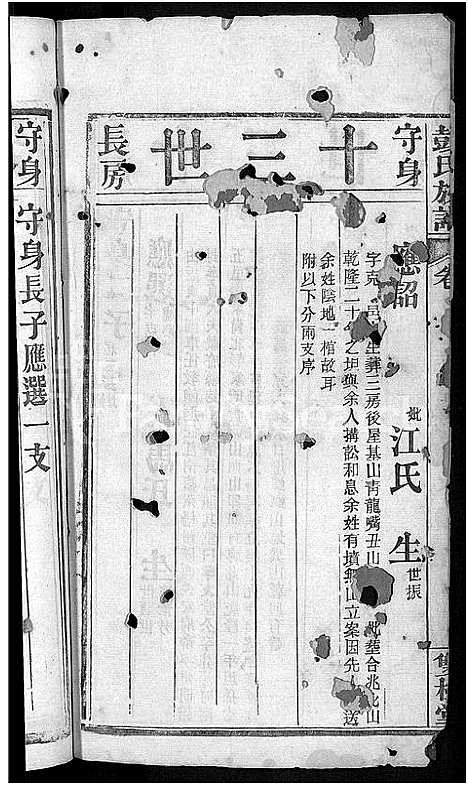 彭氏族譜
卷
守身
十三世
長房
應詔
妣江氏 生世振
字克 邑 生葬三房後屋基山靑龍嘴丑山 妣塟合兆此山
乾隆二十 之坦與余人搆訟和息余姓有墳無山立案因先人 送
余姓陰地一棺故耳
附以下分兩支序
守身 守身長子應選一支